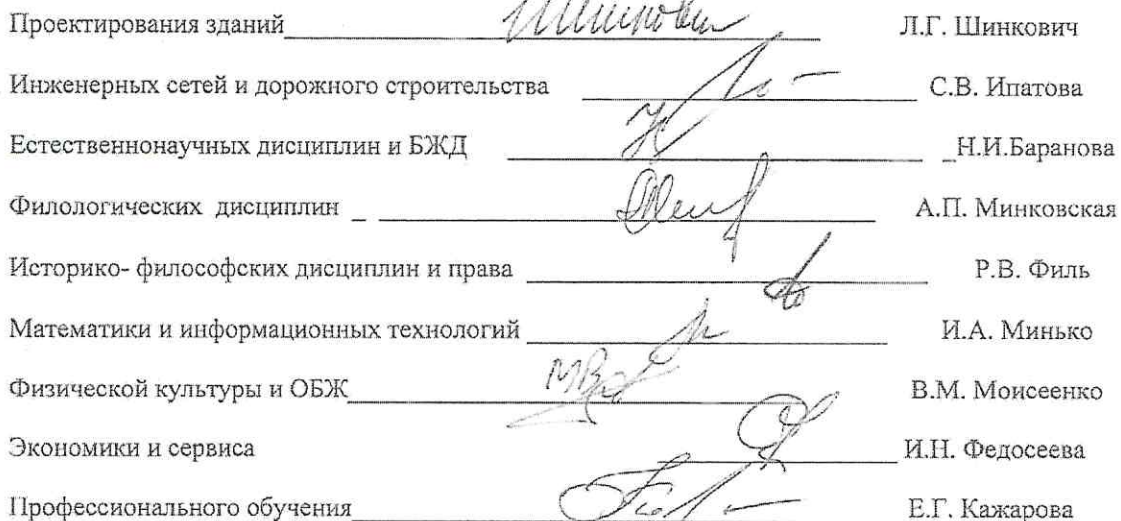 Проектирования зданий Шинкович Л.Г. Шинкович
Инженерных сетей и дорожного строительства С.В. Ипатова
Естественнонаучных дисциплин и БЖД _Н.И.Баранова
Филологических дисциплин _ А.П. Минковская
Историко- философских дисциплин и права Р.В. Филь
Математики и информационных технологий И.А. Минько
Физической культуры и ОБЖ В.М. Моисеенко
Экономики и сервиса И.Н. Федосеева
Профессионального обучения Е.Г. Кажарова